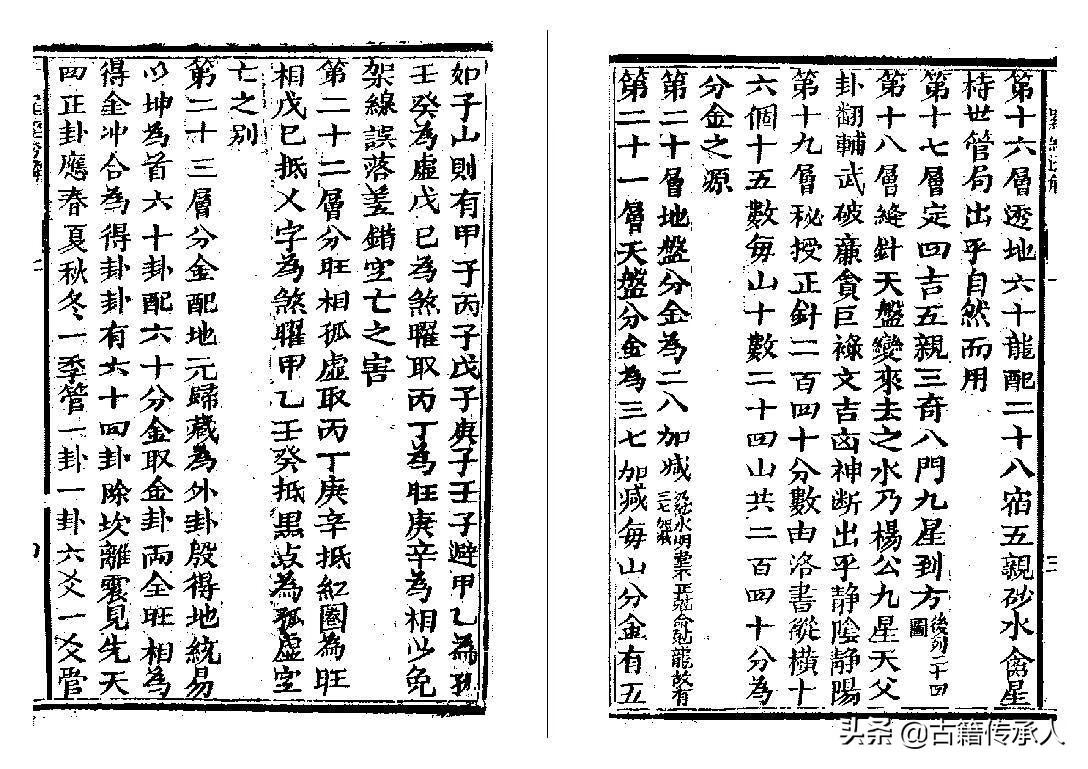 第十六層透地六十龍配二十八宿五親砂水禽星
持世管局出乎自然而用
第十七層定四吉五親三奇八門九星到方後列二十四圖
第十八層縫針天盤變來去之水乃楊公九星天父
卦翻輔武破廉貪巨祿文吉凶神断出乎静陰静陽
第十九層秘授正針二百四十分數由洛書縱橫十
六個十五數每山十數二十四山共二百四十分為
分金之源
第二十層地盤分金為二八加减
第二十一層天盤分金為三七加减每山分金有五
如子山則有甲子丙子戊子庚子壬子避甲乙為孤
壬癸為虛戊巳為煞曜取丙丁為旺庚辛為相以免
架線誤落差錯空亡之害
第二十二層分旺相孤虛取丙丁庚辛抵紅圈為旺
相戊巳抵乂字為煞曜甲乙壬癸抵黑点為孤虛空
亡之别
第二十三層分金配地元歸藏為外卦殷得地統易
以坤為首六十卦配六十分金取金卦両全旺相為
得金冲合為得卦卦有六十四卦除坎離震見先天
四正卦應春夏秋冬一季管一卦一卦六爻一爻管
三
头条 @古籍传承人